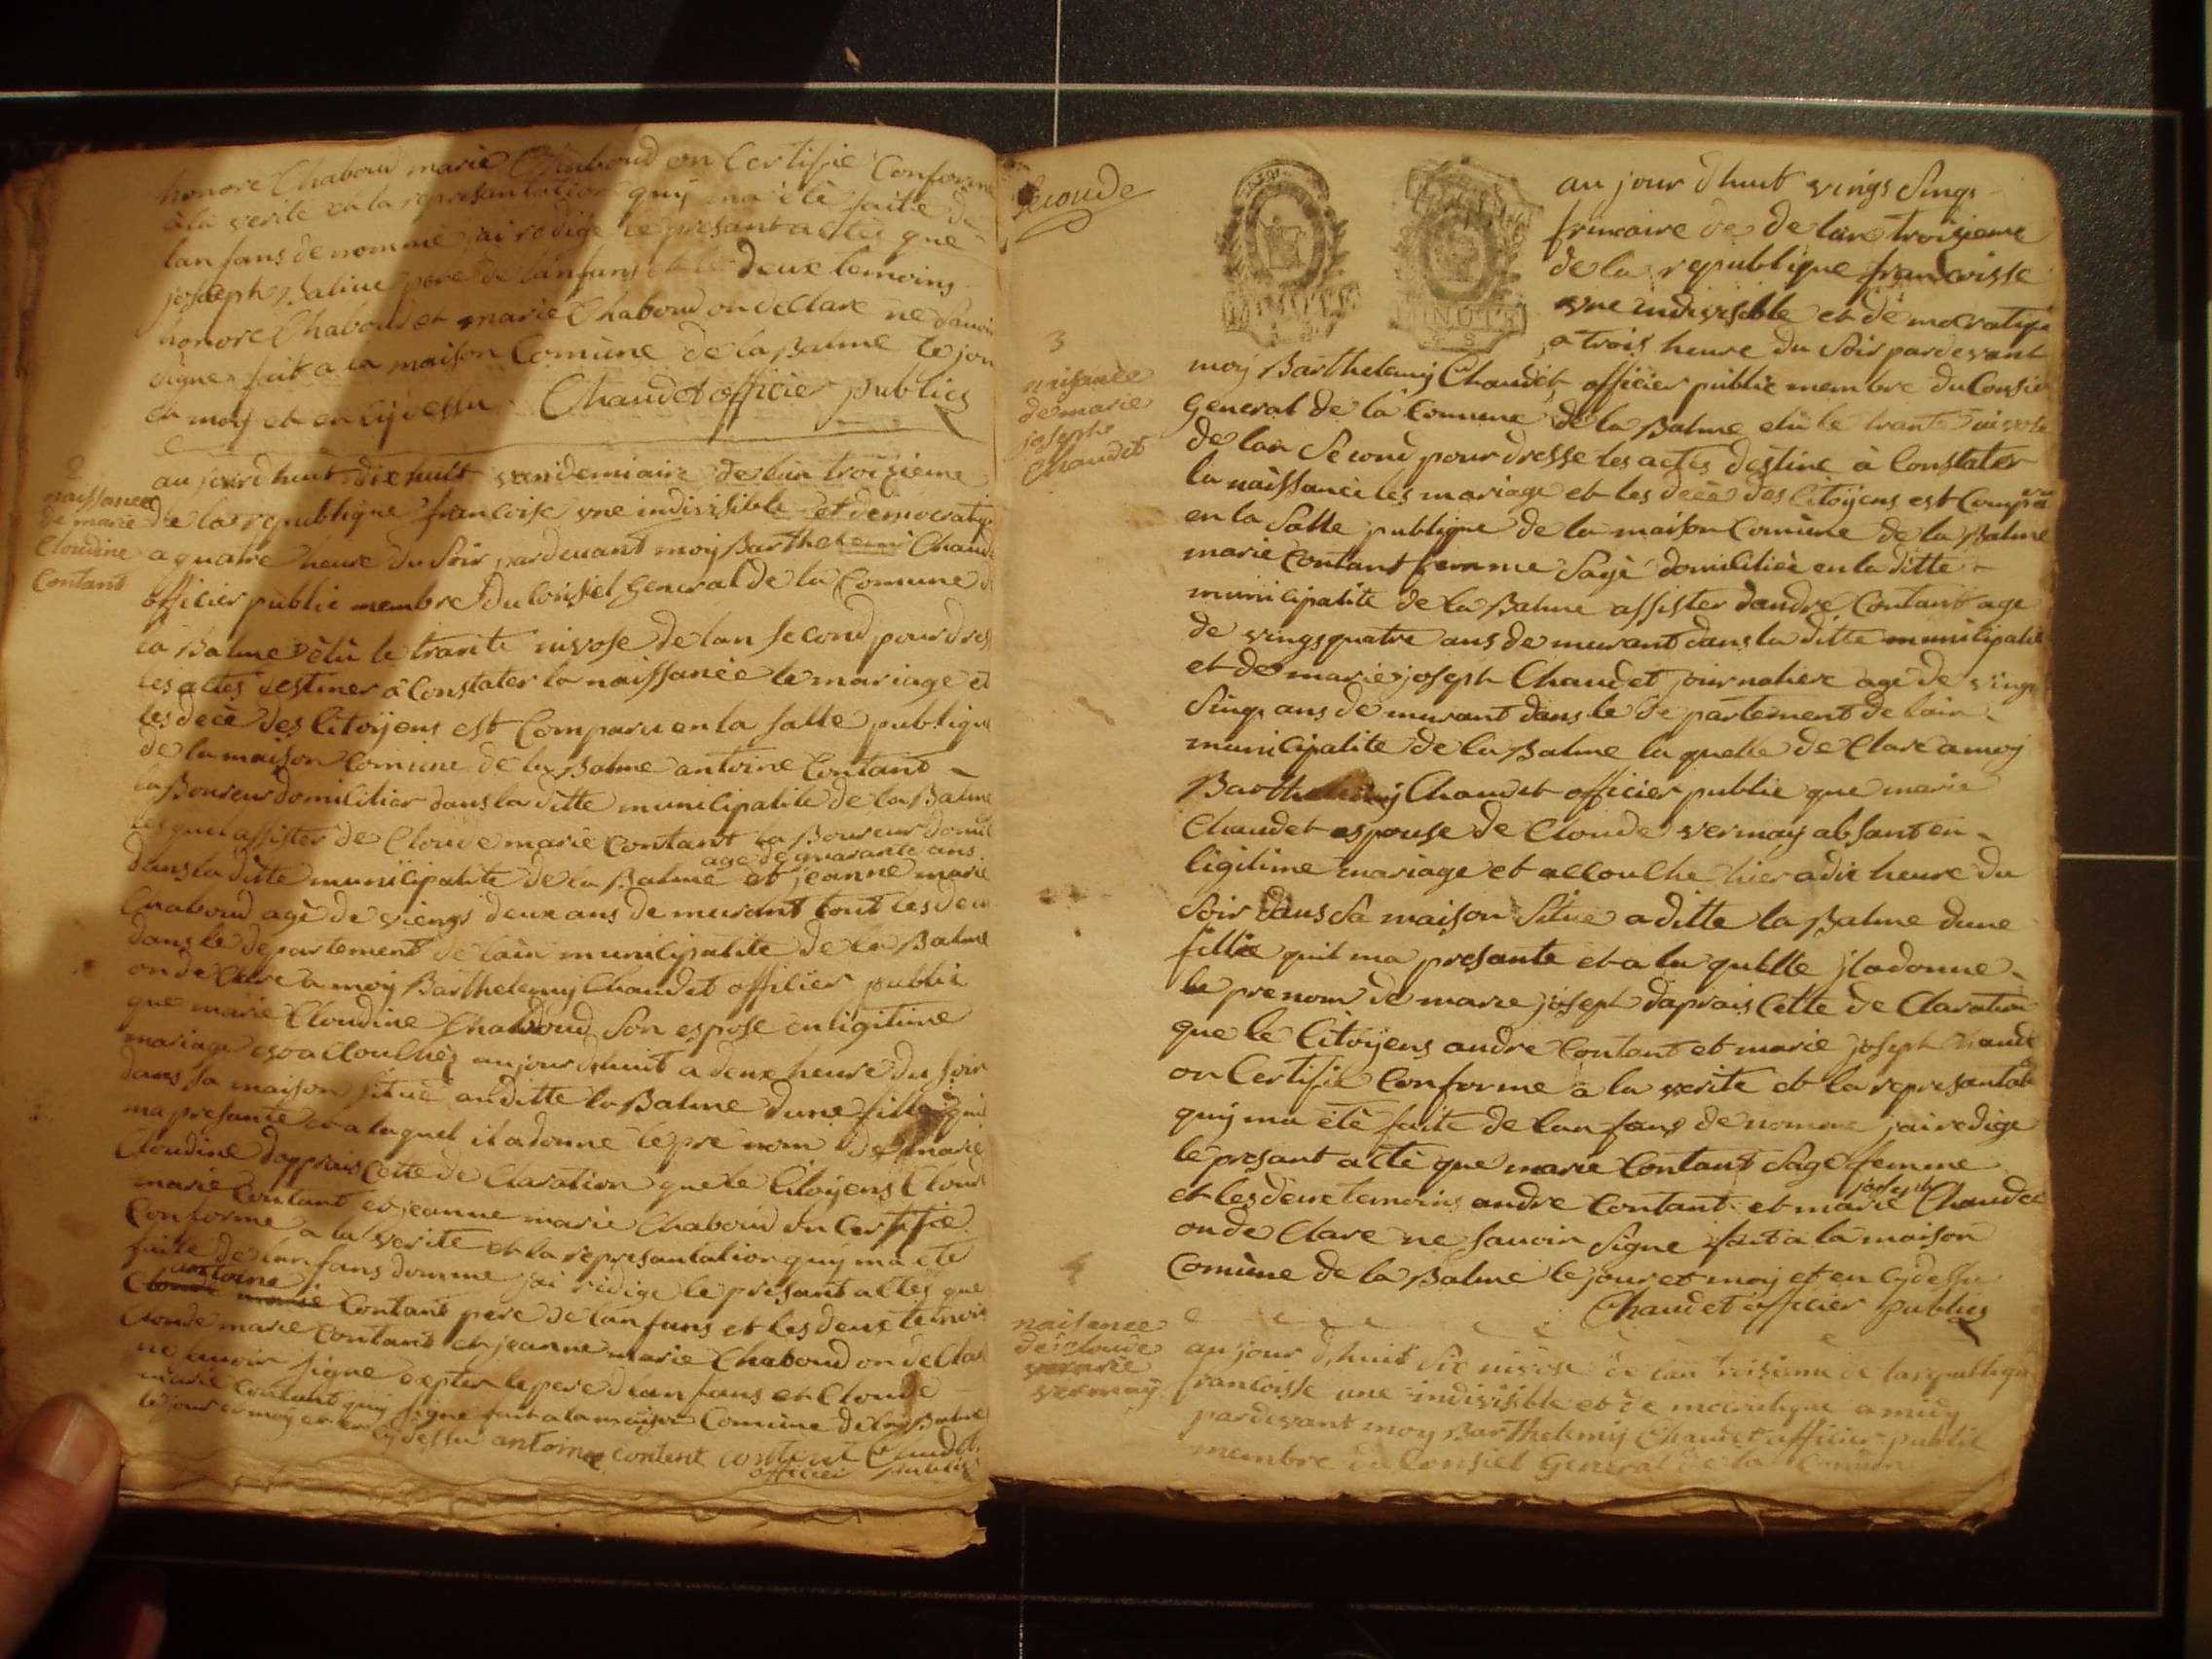 honore Chaboud marie Chaboud on Certifie Conforme
à la verite et la represantation quy ma été faite de
lanfans denommé jai redige le presant actes que
joseph Baline pere de lanfans et les deux temoins
honore Chaboud et marie Chaboud on declare ne savoir
signe fait a la maison Comune de la Balme le jour
et moy et en cy dessu Chaudet officier publics
2
naissance
de marie
Cloudine
Contant
au jourdhuit dix huit vandemiaire de lan troisieme
de la republique francoise une indivisible et democratiq
a quatre heure du soir pardevant moy Barthelemi Chaud
officier public membre du Consiel general de la Comune d
la Balme élü le trante nivose de lan second pour dres
les actes destiner a Constater la naissance le mariage et
les decè des Citoÿens est Comparu en la salle publique
de la maison Comune de la Balme antoine Contant
laBoureur domicilier dans la ditte municipalite de la Balme
lesquel assister de Cloude marie Contant laBoureur domil
age de quarante ans
dans la ditte municipalite de la Balme et jeanne marie
Chaboud agè de viengs deux ans demeurant tout les deu
dans le departement de lain municipalite de la Balme
on declare a moy Barthelemy Chaudet officier public
que marie Cloudine Chaboud son espose en ligitime
mariage est accouchéz aujourdhuit a deux heure du soir
dans sa maison situé auditte la Balme dune fille quil
ma presante et a laquel il a donne le pre nom de marie
Cloudine dapprais Cette declaration que le Citoÿens Cloud
marie Contant et jeanne marie Chaboud on Certifie
Conforme a la verite et la represantation quy ma ete
faite de lanfans domme jai redige le presant actes que
antoine
Cloude marie Contant pere de lanfans et les deux temoin
Cloude marie Contant et jeanne marie Chaboud on declar
ne savoir signe depter le pere dlanfans et Cloude
marie Contant quy signe fait a la maison Comune de la Balme
le jour et moy et en cy dessu antoine content content Chaudet
officier public
seconde
au jour dhuit vings sings
frimaire de de lan troisieme
de la republique francoisse
une indivisible et democratiqu
a trois heure du soir pardevant
3
naisance
de marie
joseph
Chaudet
moy Barthelemy Chaudet officier public membre du Consie
general de la Comune de la Balme elü le trante nivose
de lan second pour dresse les actes destine à Constater
la naissance les mariage et les décè des Citoÿens est Compa
en la salle publique de la maison Comune de la Balme
marie Contant femme sage domiciliée en la ditte
municipalite de la Balme assister dandre Contant age
de vings quatre ans demeurant dans la ditte municipalit
et de marie joseph Chaudet journaliere age de vings
sings ans demurant dans le departement de lain
municipalite de la Balme la quelle declare a moy
Barthelemy Chaudet officier public que marie
Chaudet espouse de Cloude vermay absant en
ligitime mariage et accouche hier a dix heure du
soir dans sa maison situe a ditte la Balme dune
fille quil ma presante et a la quelle il a donne
le prenom de marie joseph daprais Cette declaration
que le Citoÿens andre Contant et marie joseph Chaud
on Certifie Conforme a la verite et la represantat
quy ma été faite de lanfans denomme jai redige
le presant acte que marie Contant sage femme
joseph
et les deux temoins andre Contant et marie Chaudet
on declare ne savoir signe fait a la maison
Comune de la Balme le jour et moy et en cy dessu
Chaudet officier publics
4
naisance
de cloude
marie
vermay
au jour dhuit six nivose de lan troisieme de la republique
francoisse une indivisible et democratique a midy
pardevant moy Barthelemy Chaudet officier public
membre du Consiel General de la Comune